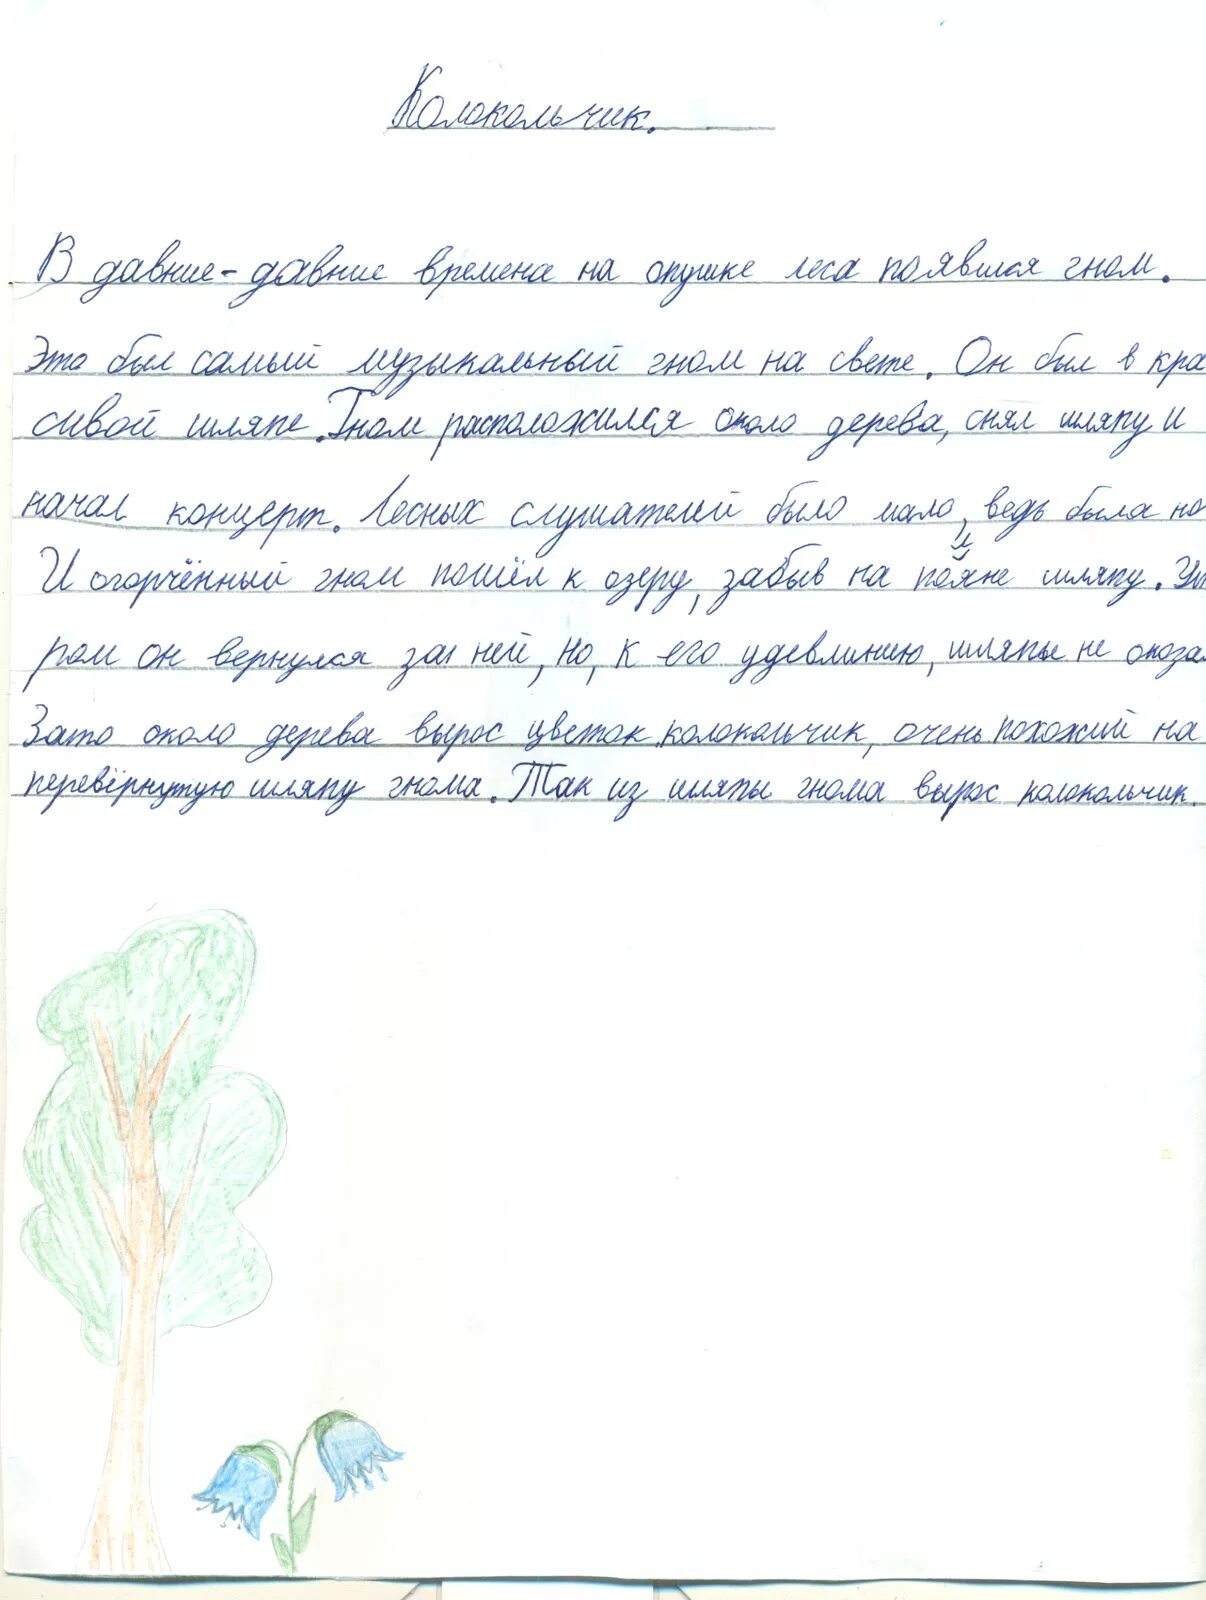 Колокольчик.
В давние-давние времена на опушке леса появился гном.
Это был самый музыкальный гном на свете. Он был в кра
сивой шляпе. Гном расположился около дерева, снял шляпу и
начал концерт. Лесных слушателей было мало, ведь была но
И огорчённый гном пошёл к озеру, забыв на поляне шляпу. Ут
ром он вернулся за ней, но, к его удевлинию, шляпы не оказа
Зато около дерева вырос цветок колокольчик, очень похожий на
перевёрнутую шляпу гнома. Так из шляпы гнома вырос колокольчик.